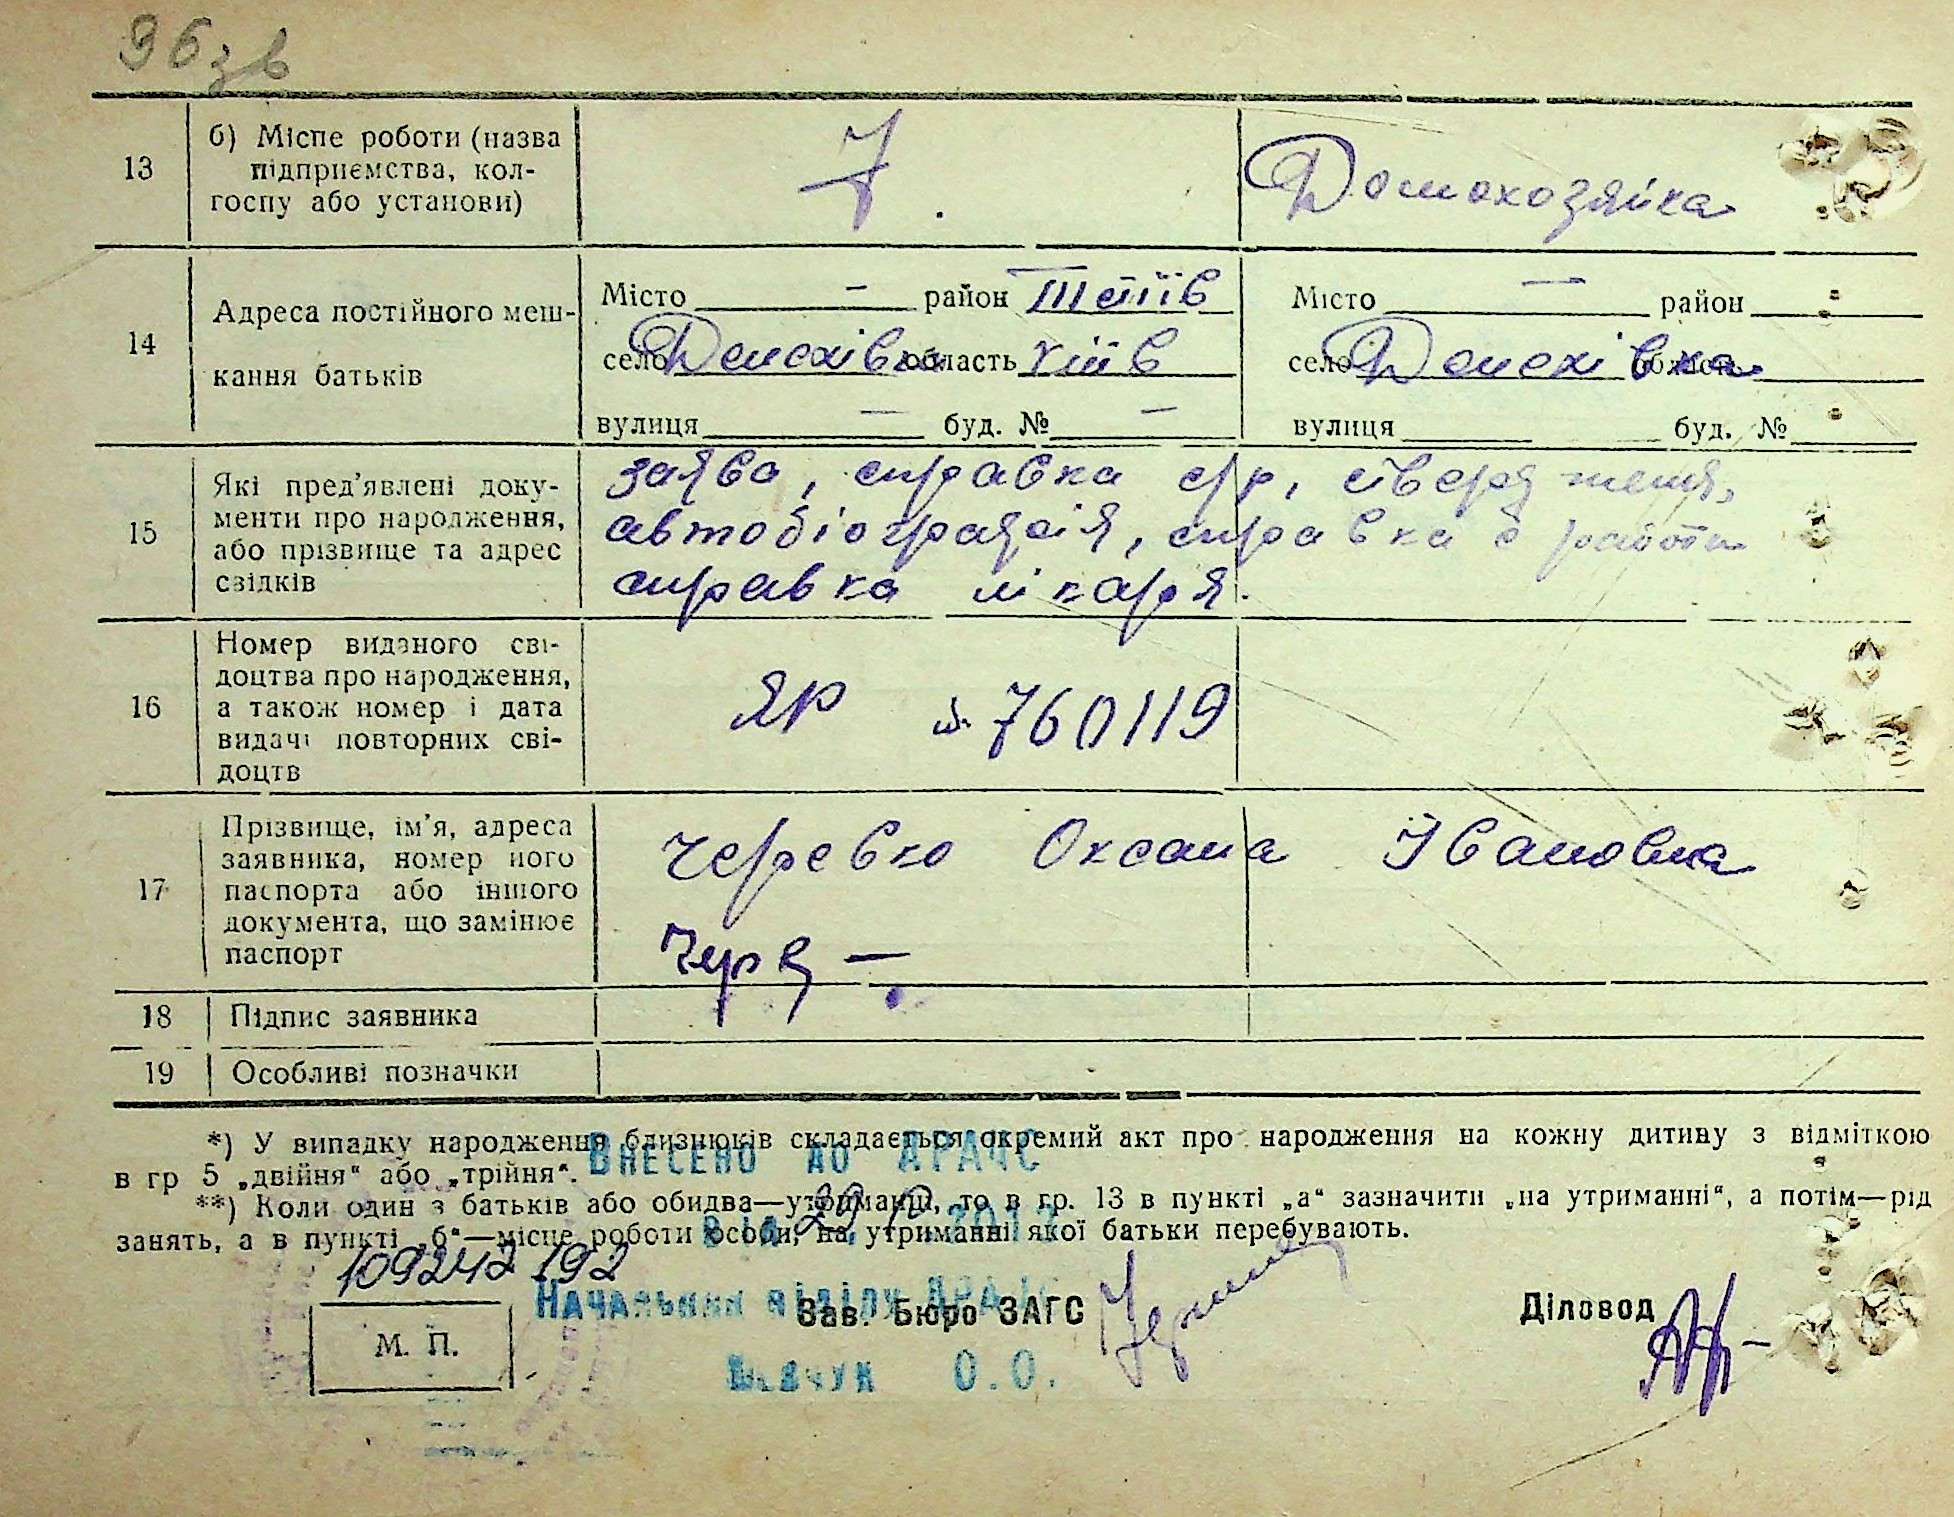 96 зв
13 б) Місце роботи (назва підприємства, кол-
госпу або установи) Домохозяйка
14 Адреса постійного меш-
кання батьків
Місто — район Тетіїв Місто — район
село область Київ село область
вулиця — буд. № — вулиця буд. №
15 Які пред'явлені доку-
менти про народження,
або прізвище та адрес
свідків
заява, справка с/р,
автобіографія, справка з работи
справка лікаря.
16 Номер виданого сві-
доцтва про народження,
а також номер і дата
видачі повторних сві-
доцтв
ЯР № 760119
17 Прізвище, ім'я, адреса
заявника, номер його
паспорта або іншого
документа, що замінює
паспорт
Черевко Оксана Івановна
18 Підпис заявника
19 Особливі позначки
*) У випадку народження близнюків складається окремий акт про народження на кожну дитину з відміткою
в гр 5 „двійня“ або „трійня“.
Внесено до ДРАЦС
**) Коли один з батьків або обидва—утриманці, то в гр. 13 в пункті „а“ зазначити „на утриманні“, а потім—рід
занять, а в пункті „б“—місце роботи особи, на утриманні якої батьки перебувають.
109242192
Начальник відділу ДРАЦС
Зав. Бюро ЗАГС Діловод
М. П.
О.О.